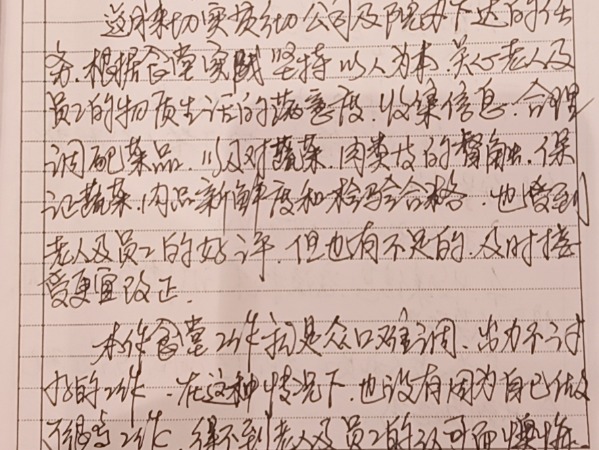 这月来切实贯彻公司及院办下达的任
务.根据食堂实践坚持以人为本关于老人及
员工的物质生活的满意度.收集信息.合理
调配菜品.以及对蔬菜.肉类皮的督触.保
证蔬菜.肉品新鲜度和检验合格.也受到
老人及员工的好评.但也有不足的.及时接
受更宜改正.
本作食堂工作扣是众口难调.出力不讨
好的工作.在这种情况下.也没有因为自己做
了很多工作.得不到老人及员工的认可而懊悔.